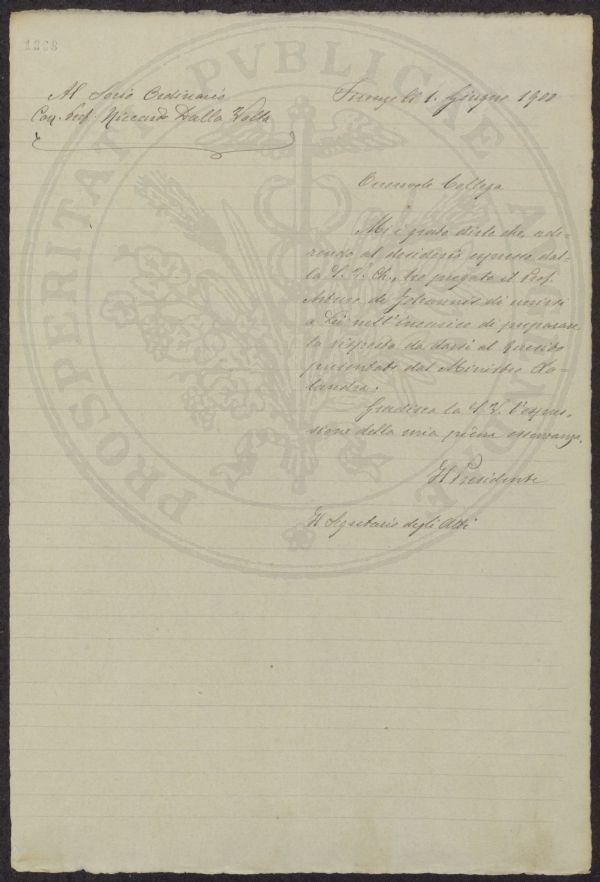 1868
Al Socio Ordinario
Cav. Prof. Riccardo Dalla Volta
Firenze li 1. Giugno 1900
Onorevole Collega
Mi è grato dirle che, ade-
rendo al desiderio espresso dal-
la S. V. Ch., ho pregato il Prof.
Arturo de Johannis di unirsi
a Lei nell'incarico di preparare
la risposta da darsi al quesito
presentato dal Ministro Oo-
landia.
Gradisca la S. V. l'espres-
sione della mia piena osservanza.
Il Presidente
Il Segretario degli Atti
PROSPERITATI PVBLICAE AV